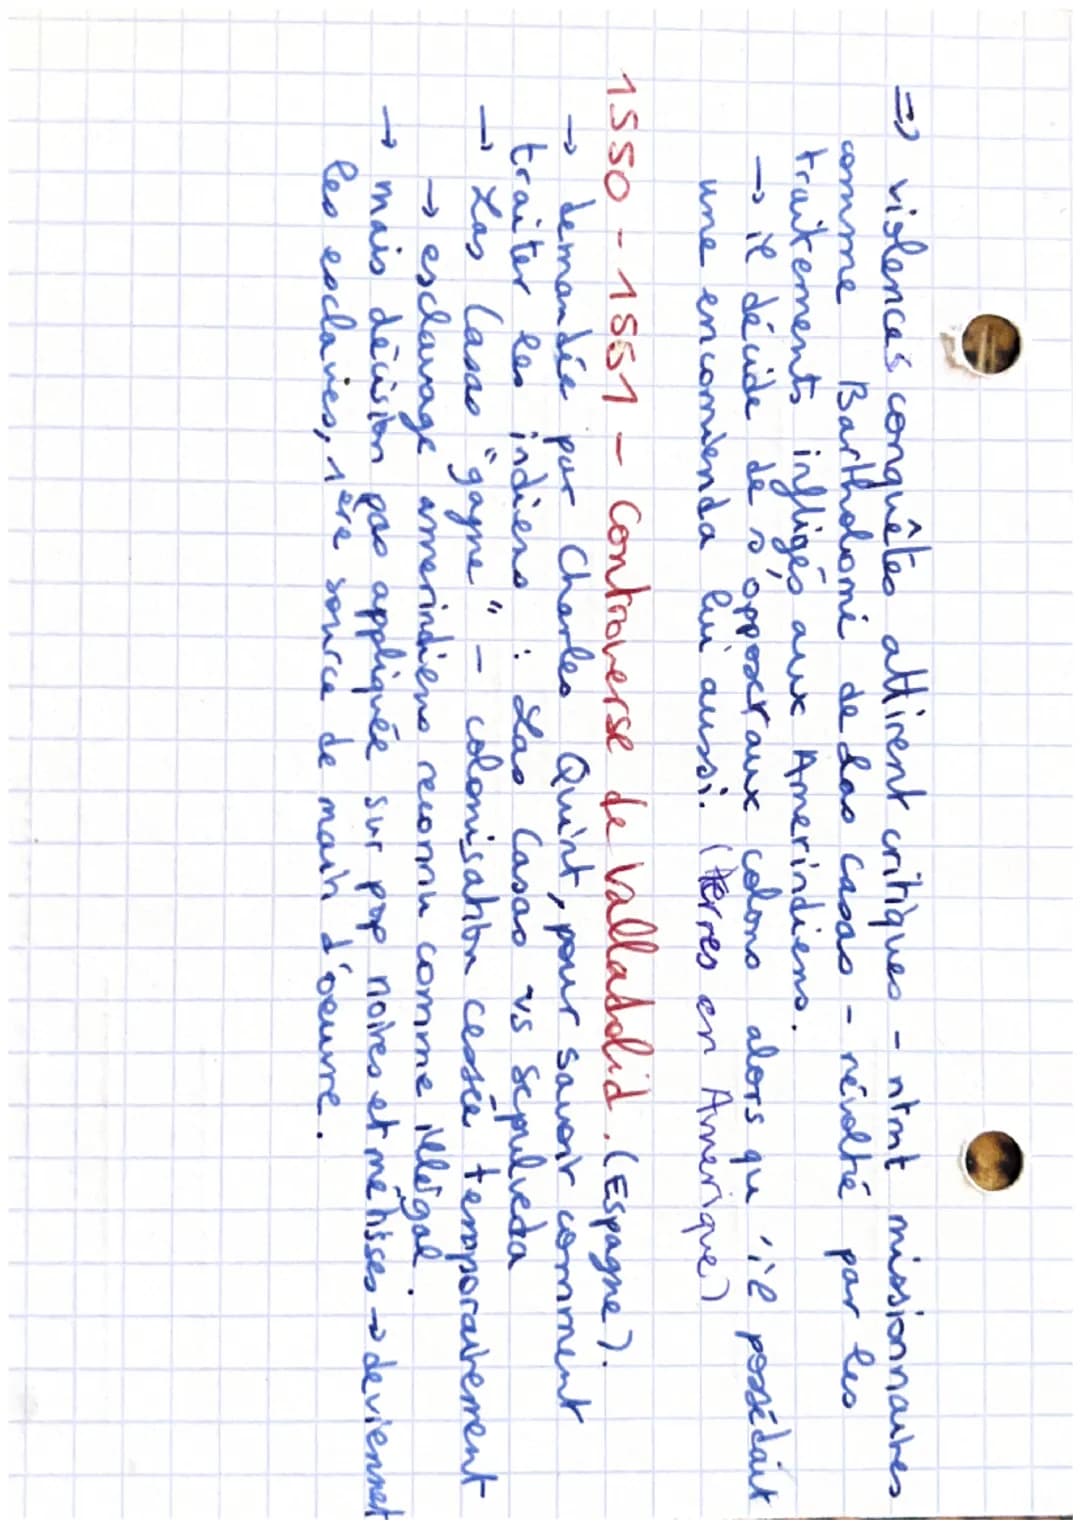 => violences conquêtes attirent critiques - ntmt missionnaires
comme Bartholomé de Las Casas - révolté par les
traitements infligés aux Amerindiens.
→ il décide de s'opposer aux colons alors qu'il possédait
une encomienda lui aussi. (terres en Amerique)
1550 - 1551 - Controverse de Valladolid. (Espagne).
→ demandée par Charles Quint, pour savoir comment
traiter les indiens : Las Casas vs Sepulveda
→ Las Casas "gagne" - colonisation cessée temporairement
→ esclavage amerindiens reconnu comme illégal.
→ mais décision pas appliquée sur pop noires et métisses → deviennent
les esclaves, 1ère source de main d'oeuvre.